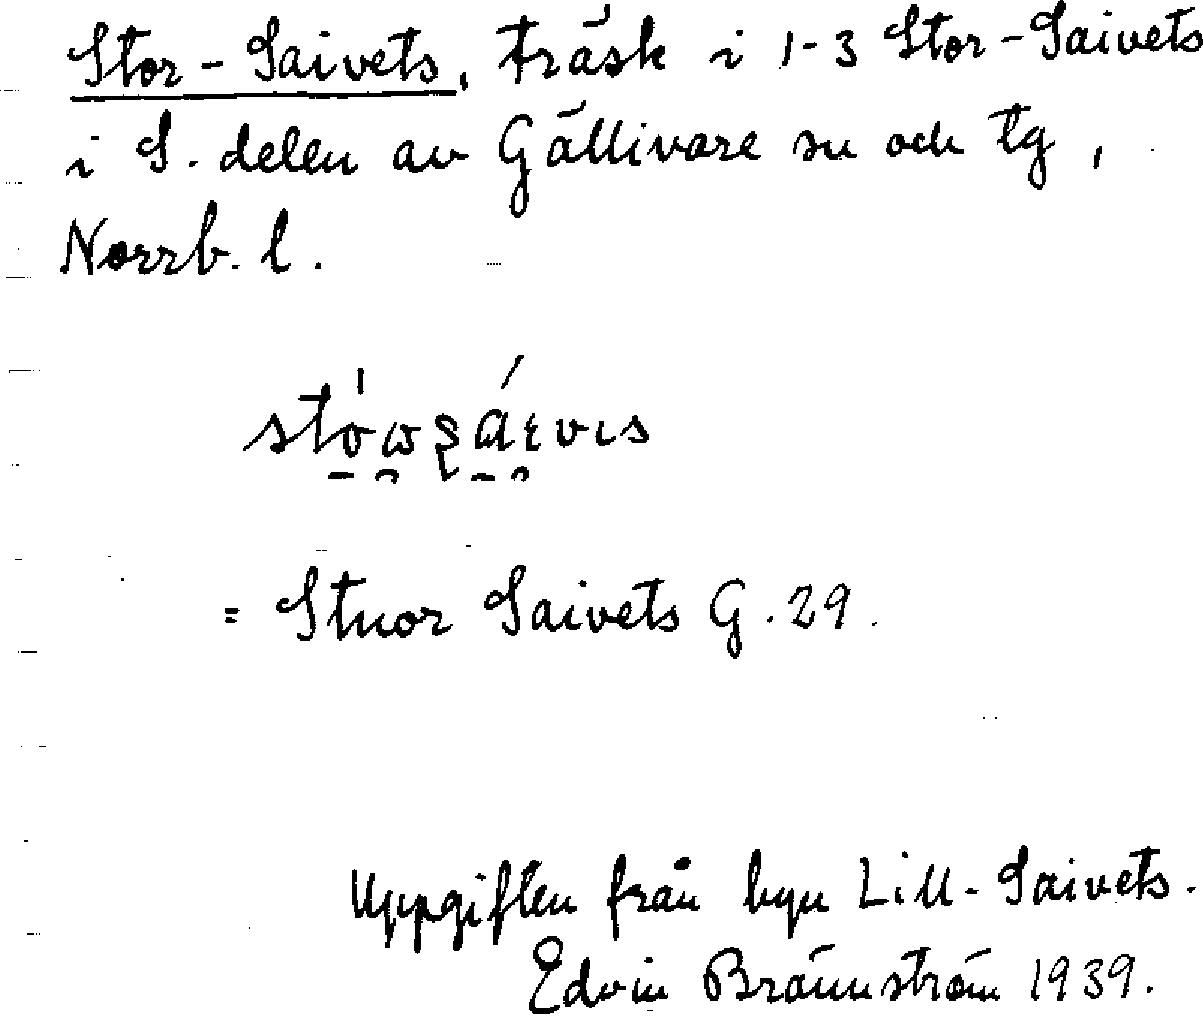 Stor-Saivets, träsk i 1-3 Stor-Saivets
i S. delen av Gällivare sn och tg,
Norrb. l.
= Stuor Saivets G. 29.
Uppgiften från byn Lill-Saivets.
Edvin Brännström 1939.